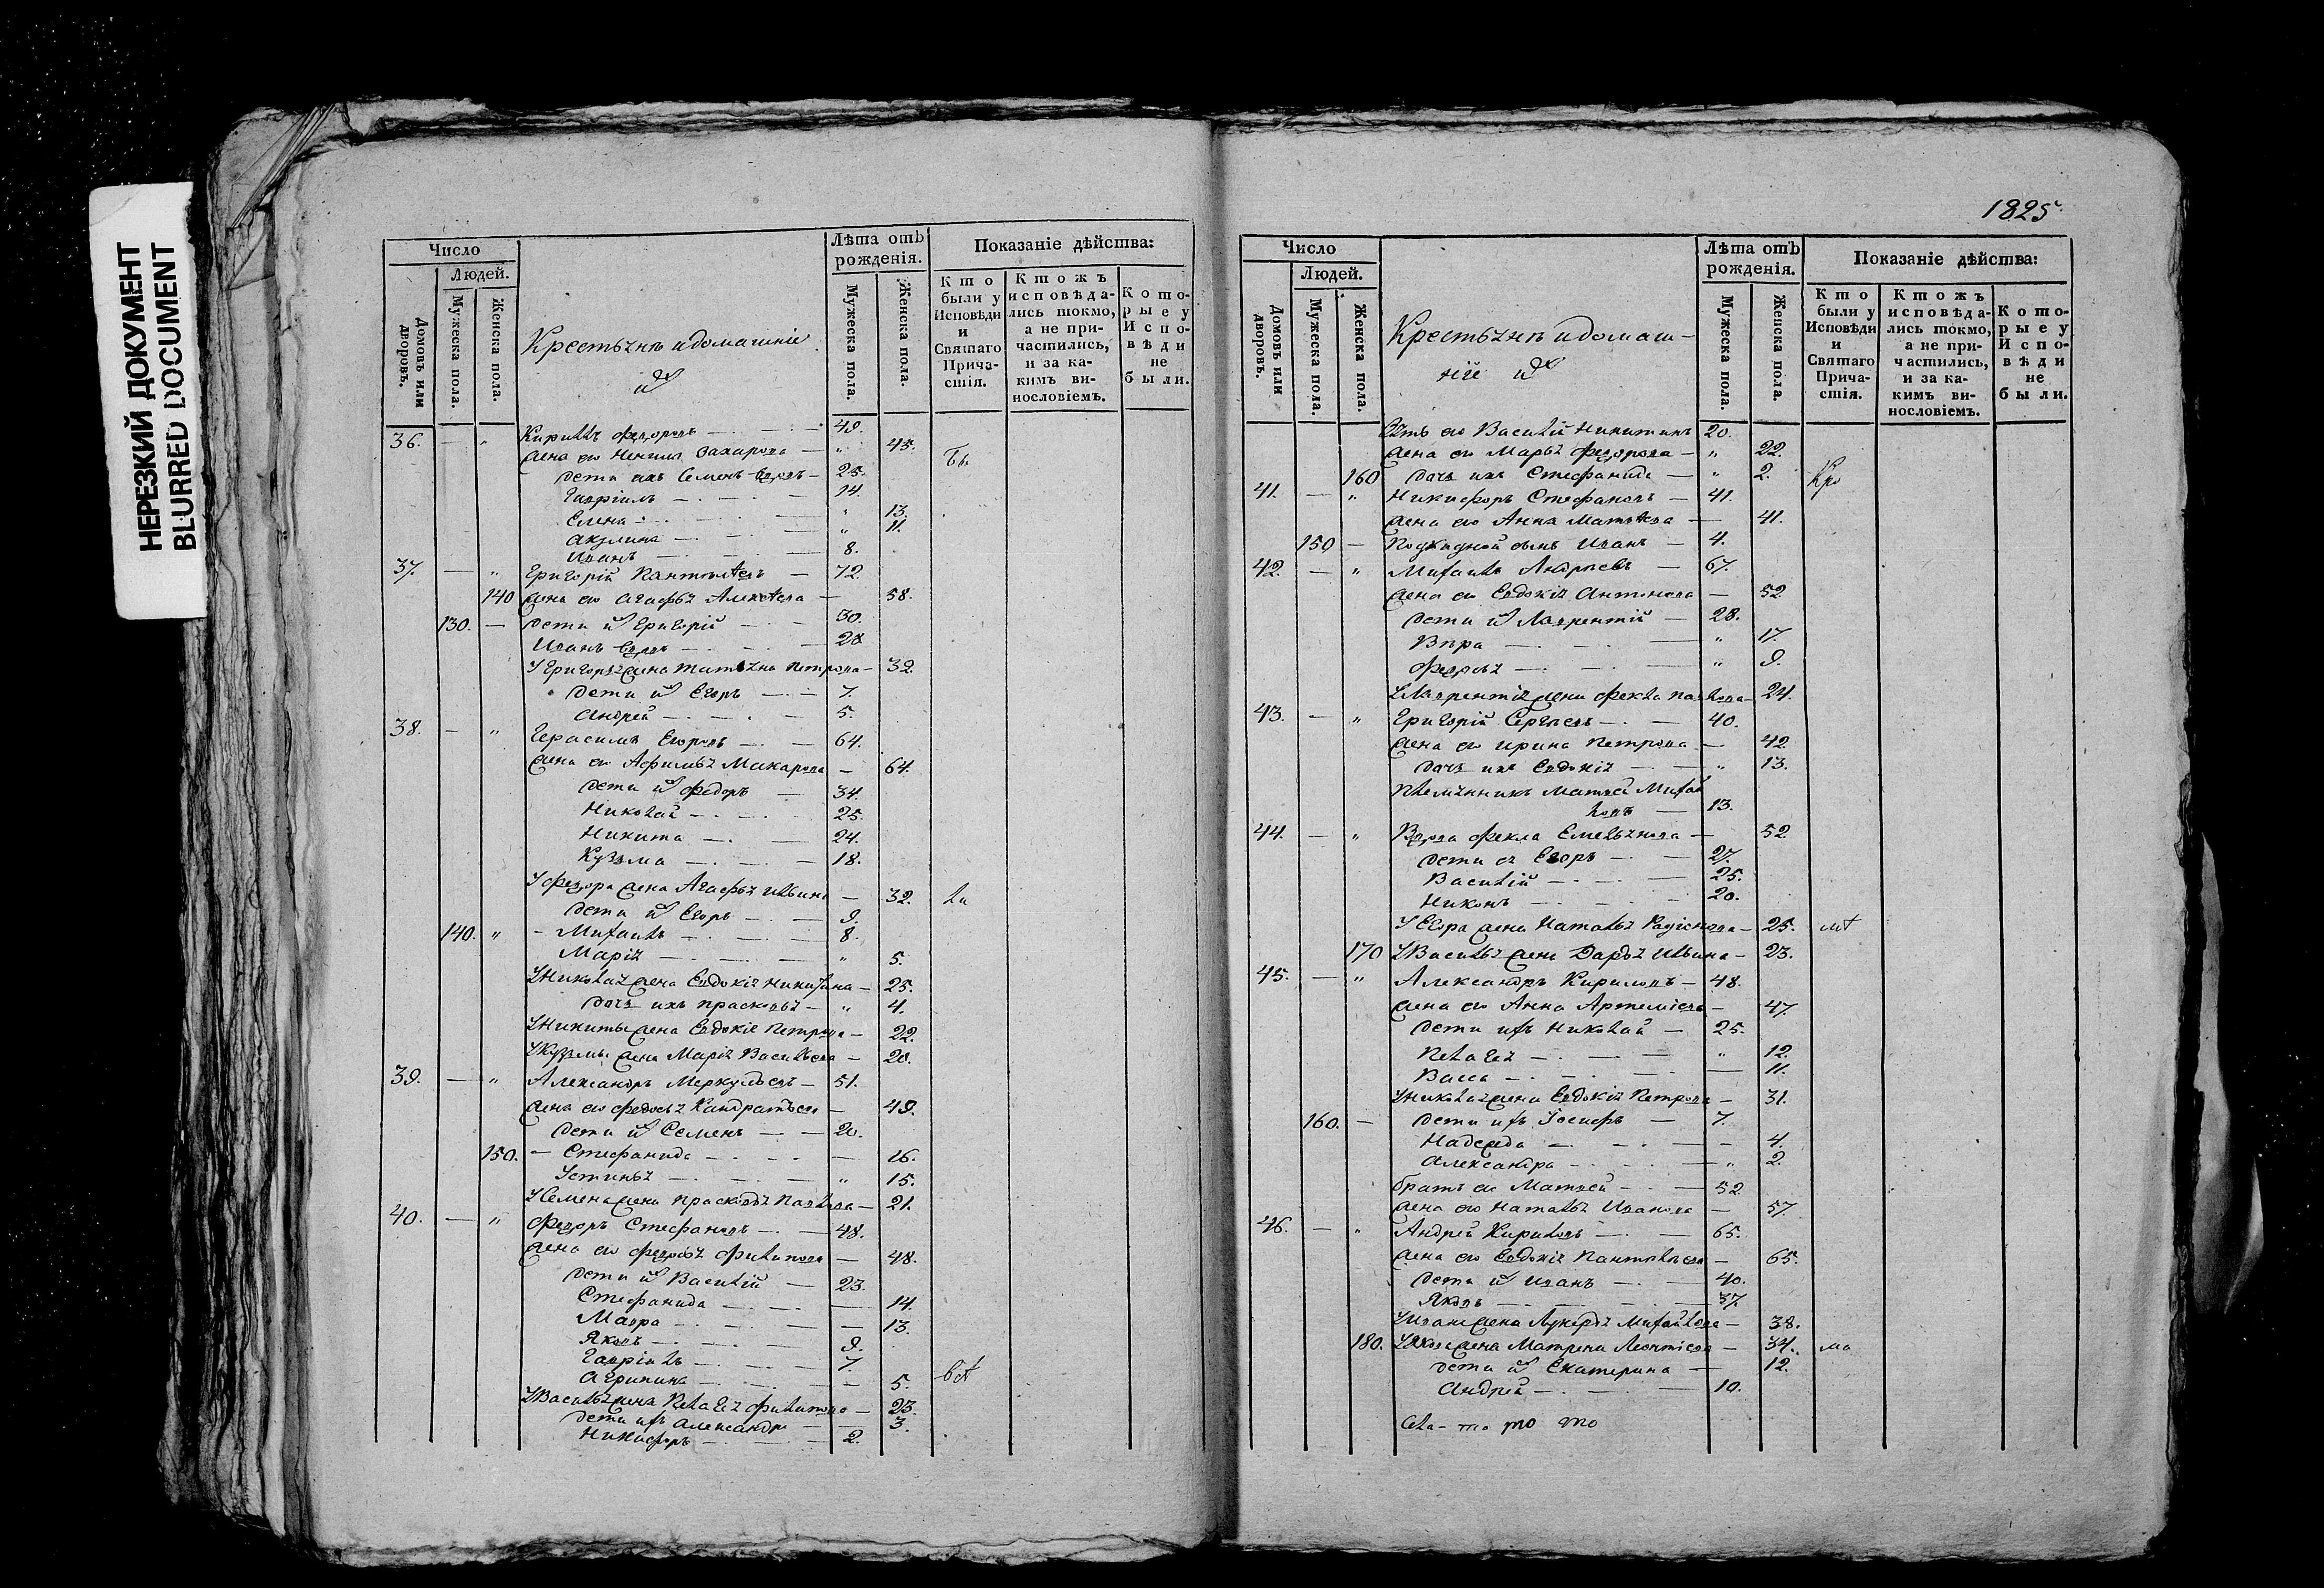 НЕРЕЗКИЙ ДОКУМЕНТ
BLURRED DOCUMENT
Число
Людей.
Домовъ или дворовъ.
Мужеска пола.
Женска пола.
Крестьянъ и домашніе
ихъ
Лѣта отъ рожденія.
Мужеска пола.
Женска пола.
Показаніе дѣйства:
Кто были у Исповѣди и Святаго Причастія.
Ктожъ исповѣдались токмо, а не причастились, и за какимъ винословіемъ.
Которые у Исповѣди не были.
36. Кирилъ Федоровъ 49.
жена его Захарова 45.
дети ихъ Семенъ вдовъ 25.
Гавріилъ 14.
Елена 13.
Акулина 11.
Иванъ 8.
37. Григорій Пантелѣевъ 72.
140 жена его Агафья Алексѣева 58.
130. дети ихъ Григорій 30.
Иванъ вдовъ 28
У Григорья жена Татьяна Петрова 32.
дети ихъ Егоръ 7.
Андрей 5.
38. Герасимъ Егоровъ 64.
жена его Афимья Макарова 64.
дети ихъ Федоръ 34.
Николай 25.
Никита 24.
Кузьма 18.
У Федора жена Агафья Ильина 32.
дети ихъ Егоръ 9.
140. Михаилъ 8.
Марія 5.
У Николая жена Евдокія Никитина 25.
дочь ихъ Прасковья 4.
У Никиты жена Евдокіе Петрова 22.
У Кузьмы жена Марія Васильева 20.
39. Александръ Меркульевъ 51.
жена его Федосья Кандратьева 49.
дети ихъ Семенъ 20.
150. Стефанида 16.
Устинья 15.
У Семена жена Прасковья Павлова 21.
40. Федоръ Стефановъ 48.
жена его Филипова 48.
дети ихъ Василій 23.
Стефанида 14.
Мавра 13.
Яковъ 9.
Гавріилъ 7.
Агрипина 5.
У Василья жена Пелагея Филипова 23.
дети ихъ Александра 3.
Никифоръ 2.
1825
Число
Людей.
Домовъ или дворовъ.
Мужеска пола.
Женска пола.
Крестьянъ и домаш-
ніе ихъ
Лѣта отъ рожденія.
Мужеска пола.
Женска пола.
Показаніе дѣйства:
Кто были у Исповѣди и Святаго Причастія.
Ктожъ исповѣдались токмо, а не причастились, и за какимъ винословіемъ.
Которые у Исповѣди не были.
Зять его Василій Никитинъ 20.
жена его Марья Федорова 22.
160 дочь ихъ Стефанида 2.
41. Никифоръ Стефановъ 41.
жена его Анна Матвѣева 41.
150 Подкидной сынъ Иванъ 4.
42. Михаилъ Андреевъ 67.
жена его Евдокія Антонова 52
дети ихъ Лаврентій 28.
Вѣра 17.
9.
У Лаврентія жена Фекла Павлова 24.
43. Григорій Сергѣевъ 40.
жена его Ирина Петрова 42
дочь ихъ Евдокія 13.
Племянникъ Матвей Михай
ловъ 13.
44. Вдова Фекла Емельянова 52.
дети ея Егоръ 27.
Василій 25.
Никонъ 20.
У Егора жена Наталья Радіонова 25.
170 У Василья жена Дарья Ильина 23.
45. Александръ Кириловъ 48.
жена его Анна Артеміева 47.
дети ихъ Николай 25.
Пелагея 12.
Васса 11.
У Николая жена Евдокія Петрова 31.
160. дети ихъ Іосифъ 7.
Надежда 4.
Александра 2.
братъ его Матвей 52
жена его Наталья Иванова 57.
46. Андрей Кириловъ 65.
жена его Евдокія Пантелѣева 65.
дети ихъ Иванъ 40.
Яковъ 37.
У Ивана жена Лукерья Михайлова 38.
180. У Якова жена Матрена Леонтіева 34.
дети ихъ Екатерина 12.
Андрей 10.